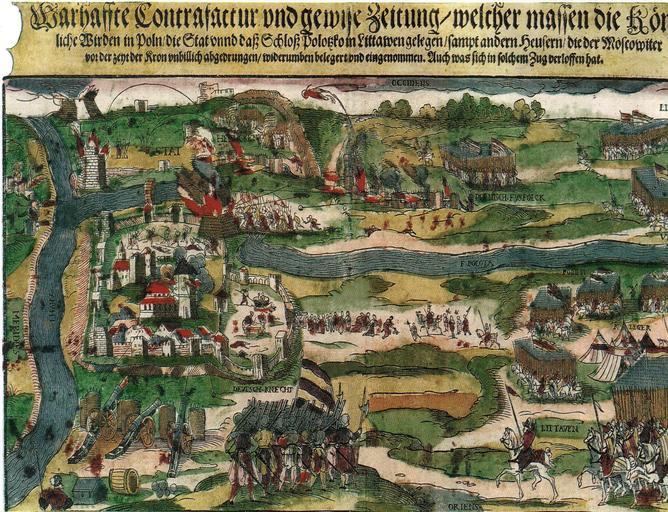 Warhaffte Contrafactur vnd gewisse Zeitung/welcher massen die Kön
liche Wirden in Poln/die Stat vnnd daß Schloß Polotzko in Littawen gelegen/sampt andern Heusern/die der Moscowiter
vor der zeyt der Kron vnbillich abgedrungen/widerumben belegert vnd eingenommen. Auch was sich in solchem Zug verloffen hat.
OCCIDENS
LI
STAT
F POLOTA
LEGER
DEVTSCH-KNECHT
LITTAVEN
ORIENS